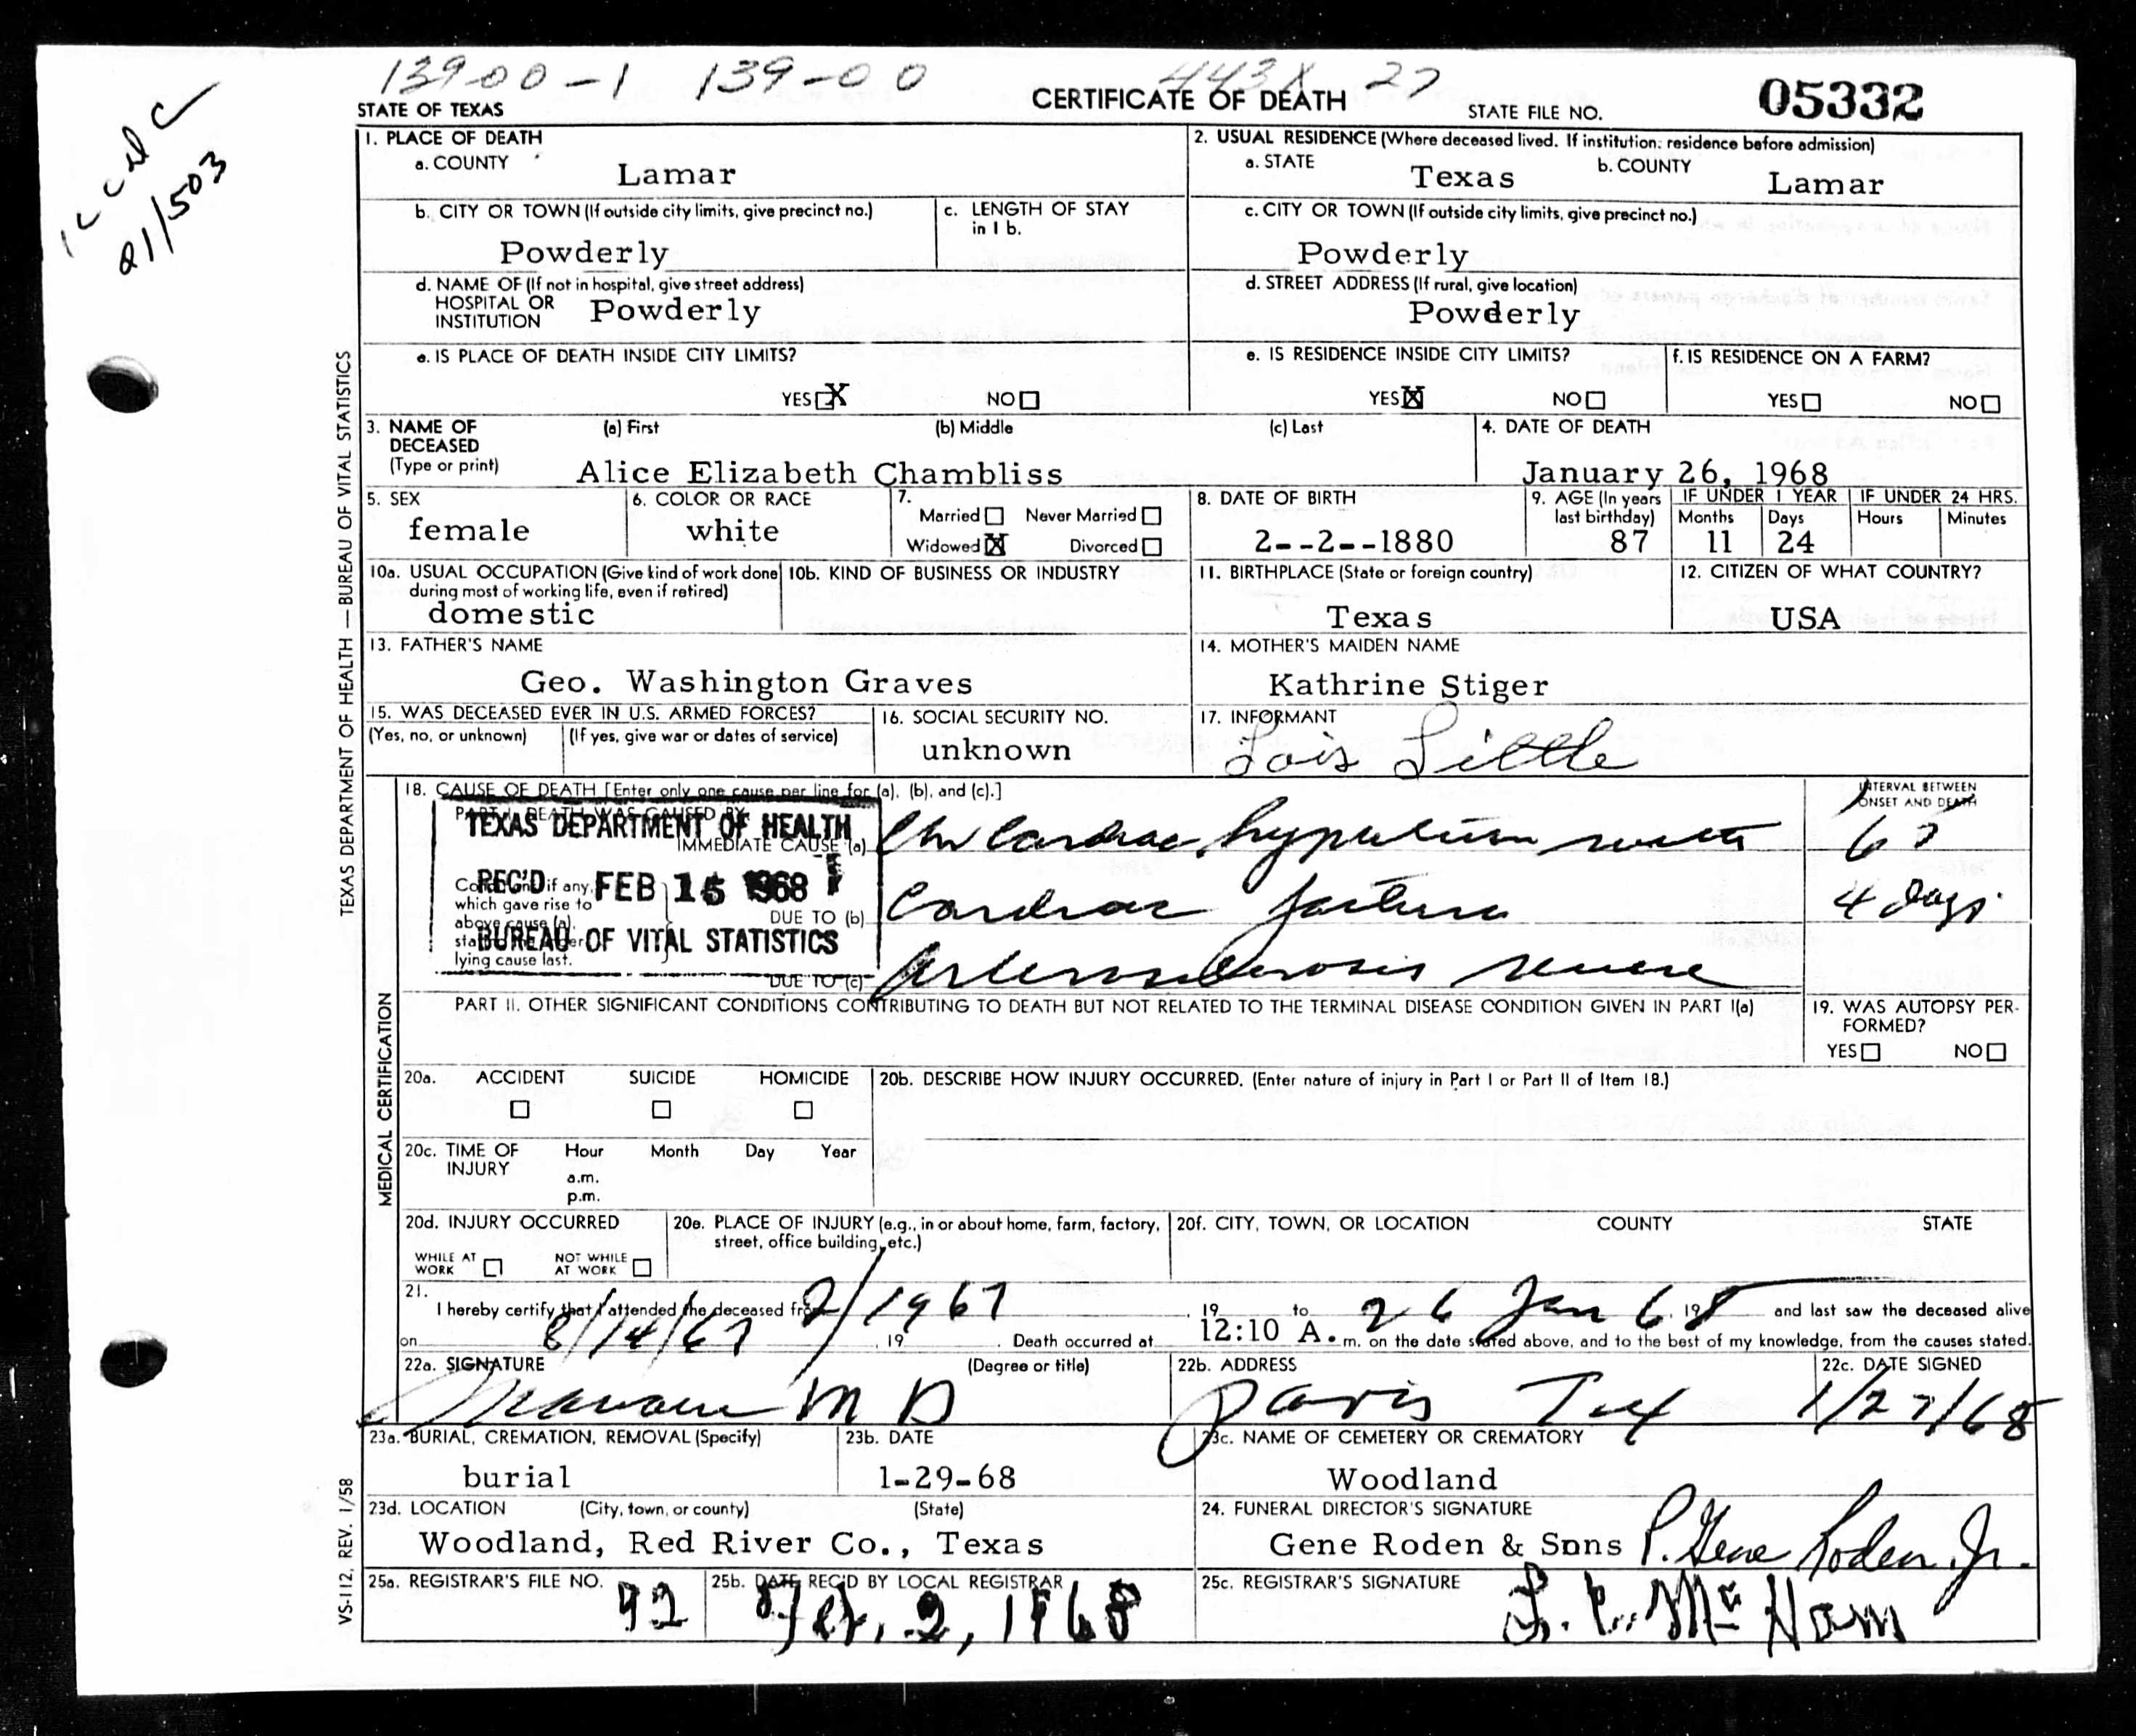 13900-1 139-00 443X 27
STATE OF TEXAS CERTIFICATE OF DEATH STATE FILE NO. 05332
21/503
1. PLACE OF DEATH
a. COUNTY Lamar
2. USUAL RESIDENCE (Where deceased lived. If institution: residence before admission)
a. STATE Texas b. COUNTY Lamar
b. CITY OR TOWN (If outside city limits, give precinct no.) Powderly
c. LENGTH OF STAY in 1 b.
c. CITY OR TOWN (If outside city limits, give precinct no.) Powderly
d. NAME OF (If not in hospital, give street address)
HOSPITAL OR INSTITUTION Powderly
d. STREET ADDRESS (If rural, give location) Powderly
e. IS PLACE OF DEATH INSIDE CITY LIMITS?
YES X NO
e. IS RESIDENCE INSIDE CITY LIMITS?
YES X NO
f. IS RESIDENCE ON A FARM?
YES NO
3. NAME OF DECEASED (Type or print)
(a) First (b) Middle (c) Last
Alice Elizabeth Chambliss
4. DATE OF DEATH January 26, 1968
5. SEX female
6. COLOR OR RACE white
7. Married Never Married
Widowed X Divorced
8. DATE OF BIRTH 2--2--1880
9. AGE (In years last birthday) 87
IF UNDER 1 YEAR Months 11 Days 24
IF UNDER 24 HRS. Hours Minutes
10a. USUAL OCCUPATION (Give kind of work done during most of working life, even if retired) domestic
10b. KIND OF BUSINESS OR INDUSTRY
11. BIRTHPLACE (State or foreign country) Texas
12. CITIZEN OF WHAT COUNTRY? USA
13. FATHER'S NAME Geo. Washington Graves
14. MOTHER'S MAIDEN NAME Kathrine Stiger
15. WAS DECEASED EVER IN U.S. ARMED FORCES?
(Yes, no, or unknown) (If yes, give war or dates of service)
16. SOCIAL SECURITY NO. unknown
17. INFORMANT Lois Little
18. CAUSE OF DEATH [Enter only one cause per line for (a), (b), and (c).]
INTERVAL BETWEEN ONSET AND DEATH
PART I. DEATH WAS CAUSED BY:
TEXAS DEPARTMENT OF HEALTH
REC'D FEB 15 1968
BUREAU OF VITAL STATISTICS
IMMEDIATE CAUSE (a) Chr Cardiac, with
Conditions, if any, which gave rise to above cause (a), stating the underlying cause last.
DUE TO (b) Cardiac failure 4 Days
DUE TO (c) Arteriosclerosis severe
PART II. OTHER SIGNIFICANT CONDITIONS CONTRIBUTING TO DEATH BUT NOT RELATED TO THE TERMINAL DISEASE CONDITION GIVEN IN PART I(a)
19. WAS AUTOPSY PERFORMED?
YES NO
20a. ACCIDENT SUICIDE HOMICIDE
20b. DESCRIBE HOW INJURY OCCURRED. (Enter nature of injury in Part I or Part II of Item 18.)
20c. TIME OF INJURY Hour Month Day Year
a.m.
p.m.
20d. INJURY OCCURRED
WHILE AT WORK NOT WHILE AT WORK
20e. PLACE OF INJURY (e.g., in or about home, farm, factory, street, office building, etc.)
20f. CITY, TOWN, OR LOCATION COUNTY STATE
21. I hereby certify that I attended the deceased from 2/1967, 19 to 26 Jan 68, 19 and last saw the deceased alive
on 8/14/67, 19. Death occurred at 12:10 A.m. on the date stated above, and to the best of my knowledge, from the causes stated.
22a. SIGNATURE (Degree or title) M D
22b. ADDRESS Paris Tex
22c. DATE SIGNED 1/27/68
23a. BURIAL, CREMATION, REMOVAL (Specify) burial
23b. DATE 1-29-68
23c. NAME OF CEMETERY OR CREMATORY Woodland
23d. LOCATION (City, town, or county) (State)
Woodland, Red River Co., Texas
24. FUNERAL DIRECTOR'S SIGNATURE
Gene Roden & Sons P. Gene Roden, Jr.
25a. REGISTRAR'S FILE NO. 92
25b. DATE REC'D BY LOCAL REGISTRAR Feb. 2, 1968
25c. REGISTRAR'S SIGNATURE
TEXAS DEPARTMENT OF HEALTH — BUREAU OF VITAL STATISTICS
MEDICAL CERTIFICATION
VS-112, REV. 1/58